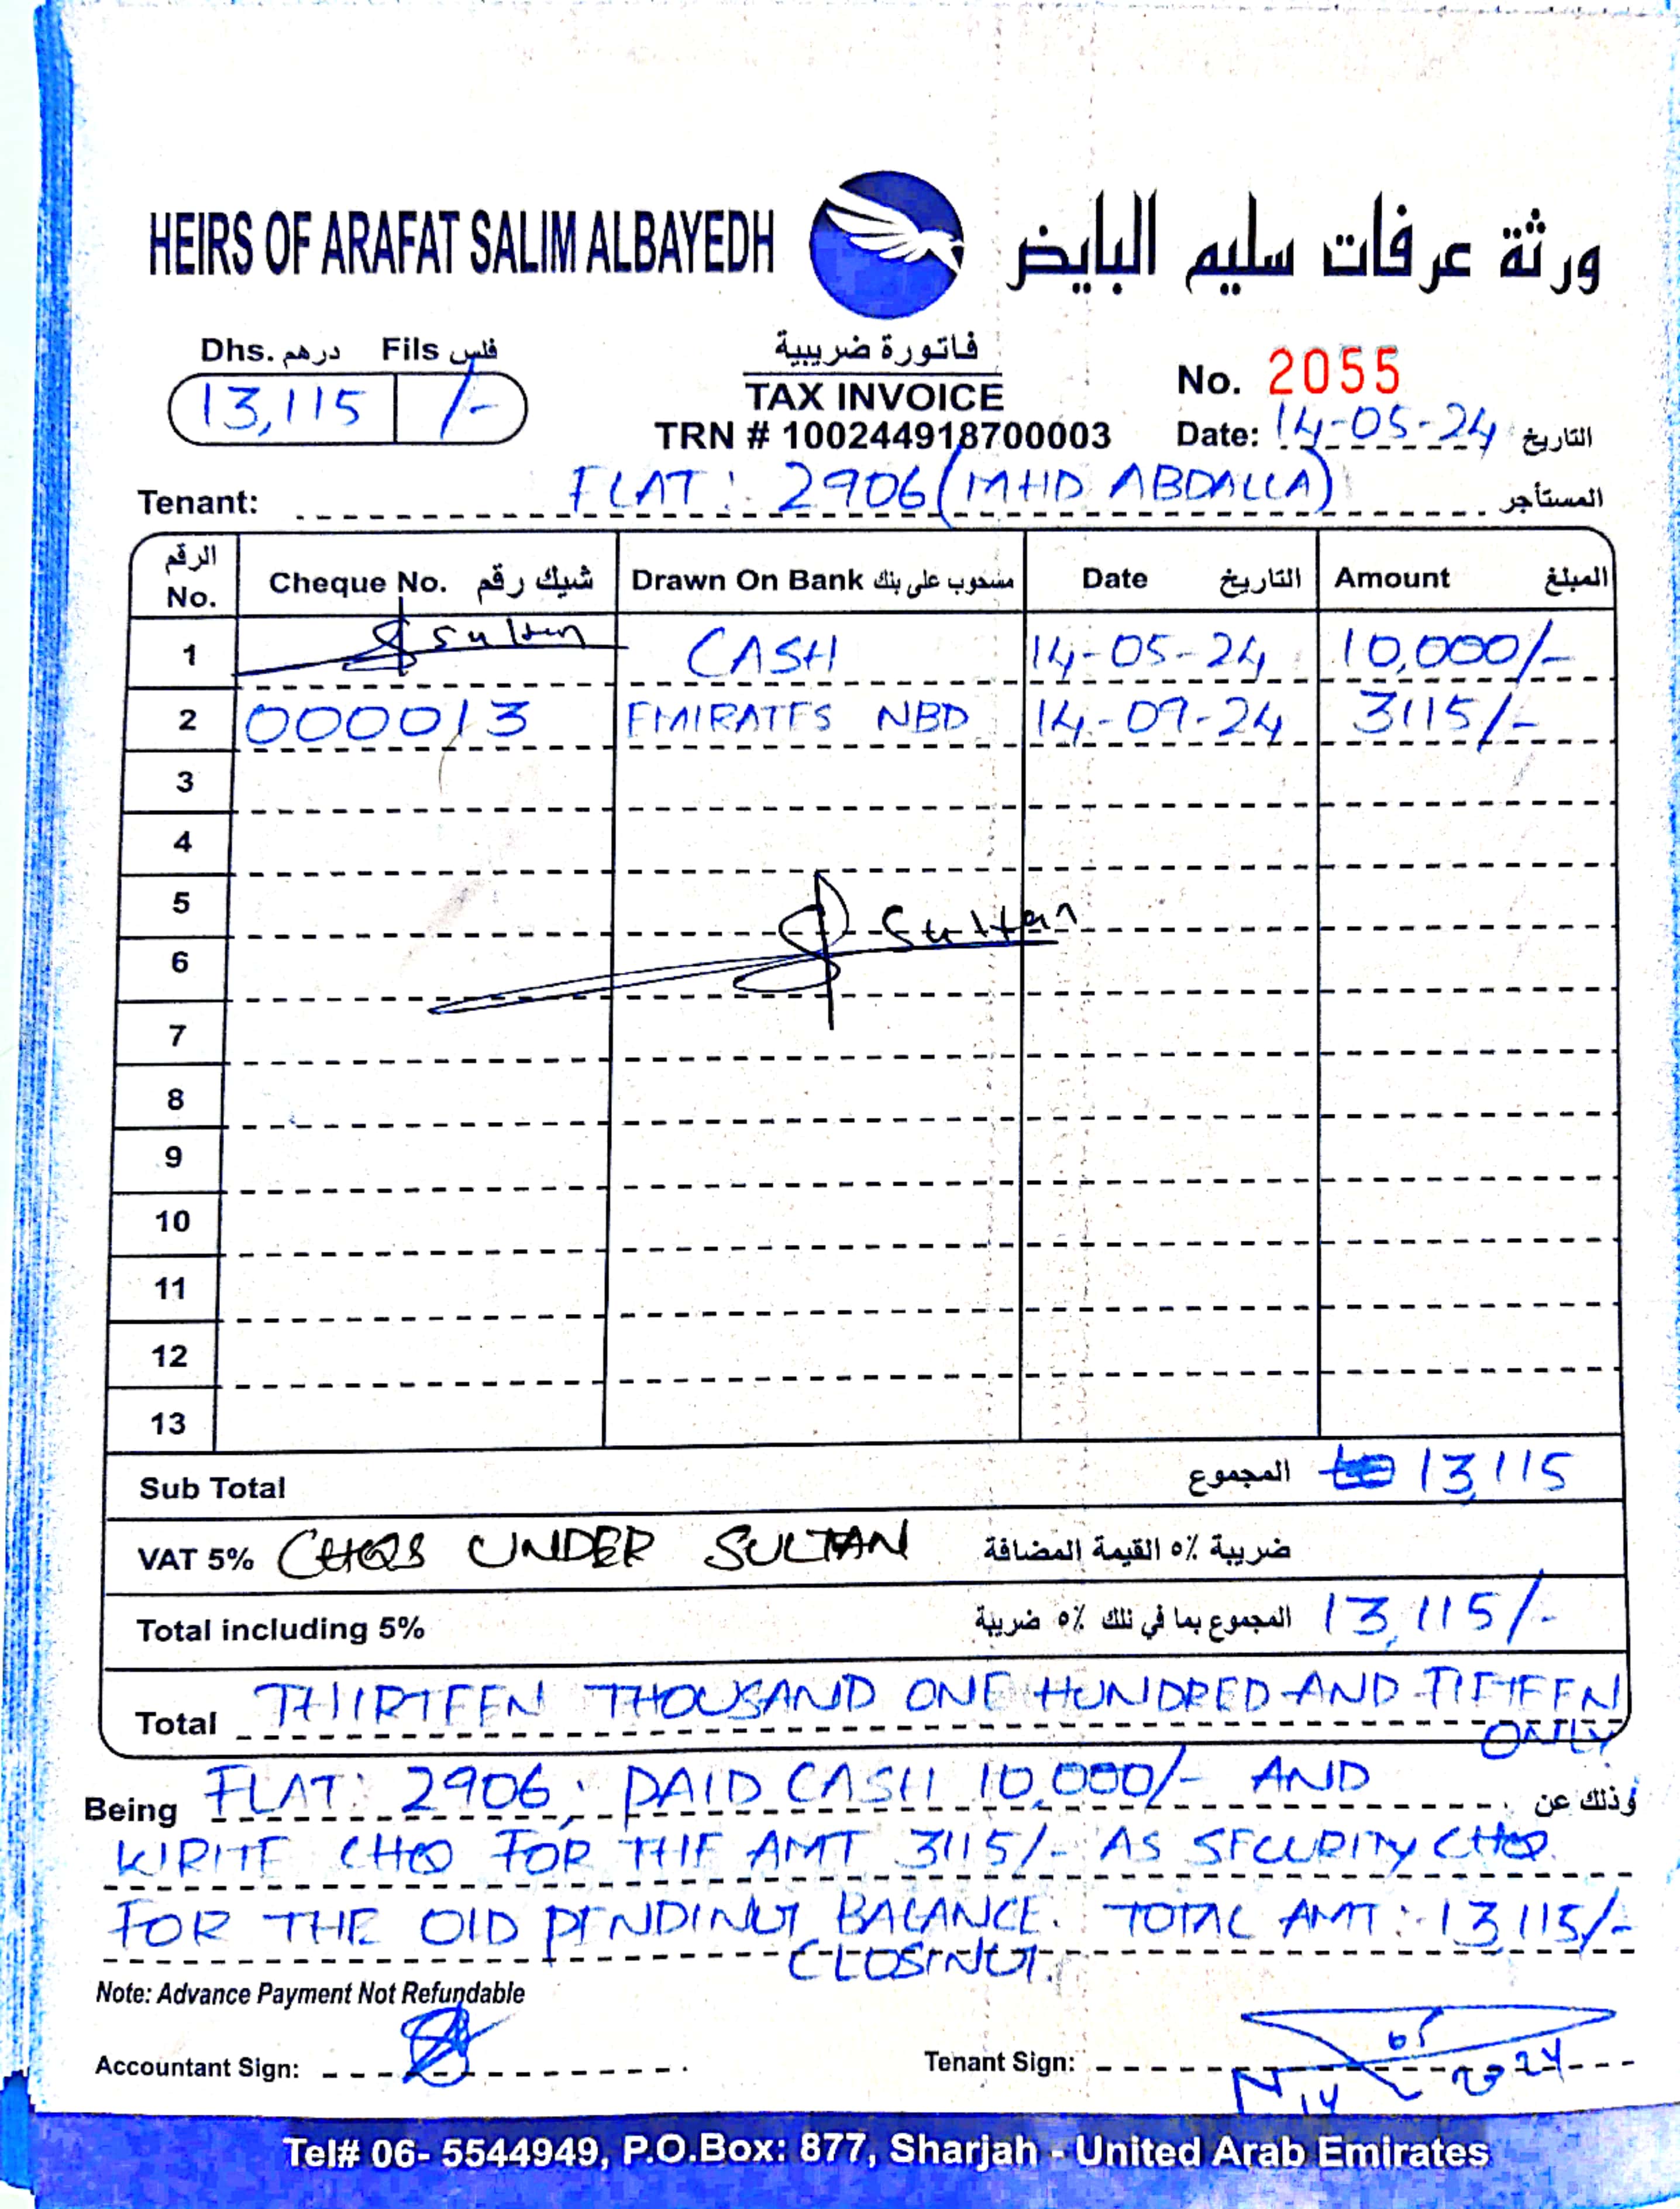 HEIRS OF ARAFAT SALIM ALBAYEDH ورثة عرفات سليم البايض
Dhs. درهم Fils فلس
13,115 /-
فاتورة ضريبية
TAX INVOICE
TRN # 100244918700003
No. 2055
Date: 14-05-24 التاريخ
Tenant: FLAT: 2906 (MHD ABDALLA) المستأجر
الرقم No. Cheque No. شيك رقم Drawn On Bank مسحوب على بنك Date التاريخ Amount المبلغ
1 Sultan CASH 14-05-24 10,000/-
2 000013 EMIRATES NBD 14-09-24 3115/-
3
4
5
Sultan
6
7
8
9
10
11
12
13
Sub Total المجموع 13,115
VAT 5% CHQS UNDER SULTAN ضريبة ٥٪ القيمة المضافة
Total including 5% المجموع بما في ذلك ٥٪ ضريبة 13,115/-
Total THIRTEEN THOUSAND ONE HUNDRED AND FIFTEEN
ONLY
Being FLAT: 2906; PAID CASH 10,000/- AND وذلك عن
WRITE CHQ FOR THE AMT 3115/- AS SECURITY CHQ.
FOR THE OLD PENDING BALANCE. TOTAL AMT: 13,115/-
CLOSING.
Note: Advance Payment Not Refundable
Accountant Sign: Tenant Sign:
14 05 2024
Tel# 06- 5544949, P.O.Box: 877, Sharjah - United Arab Emirates